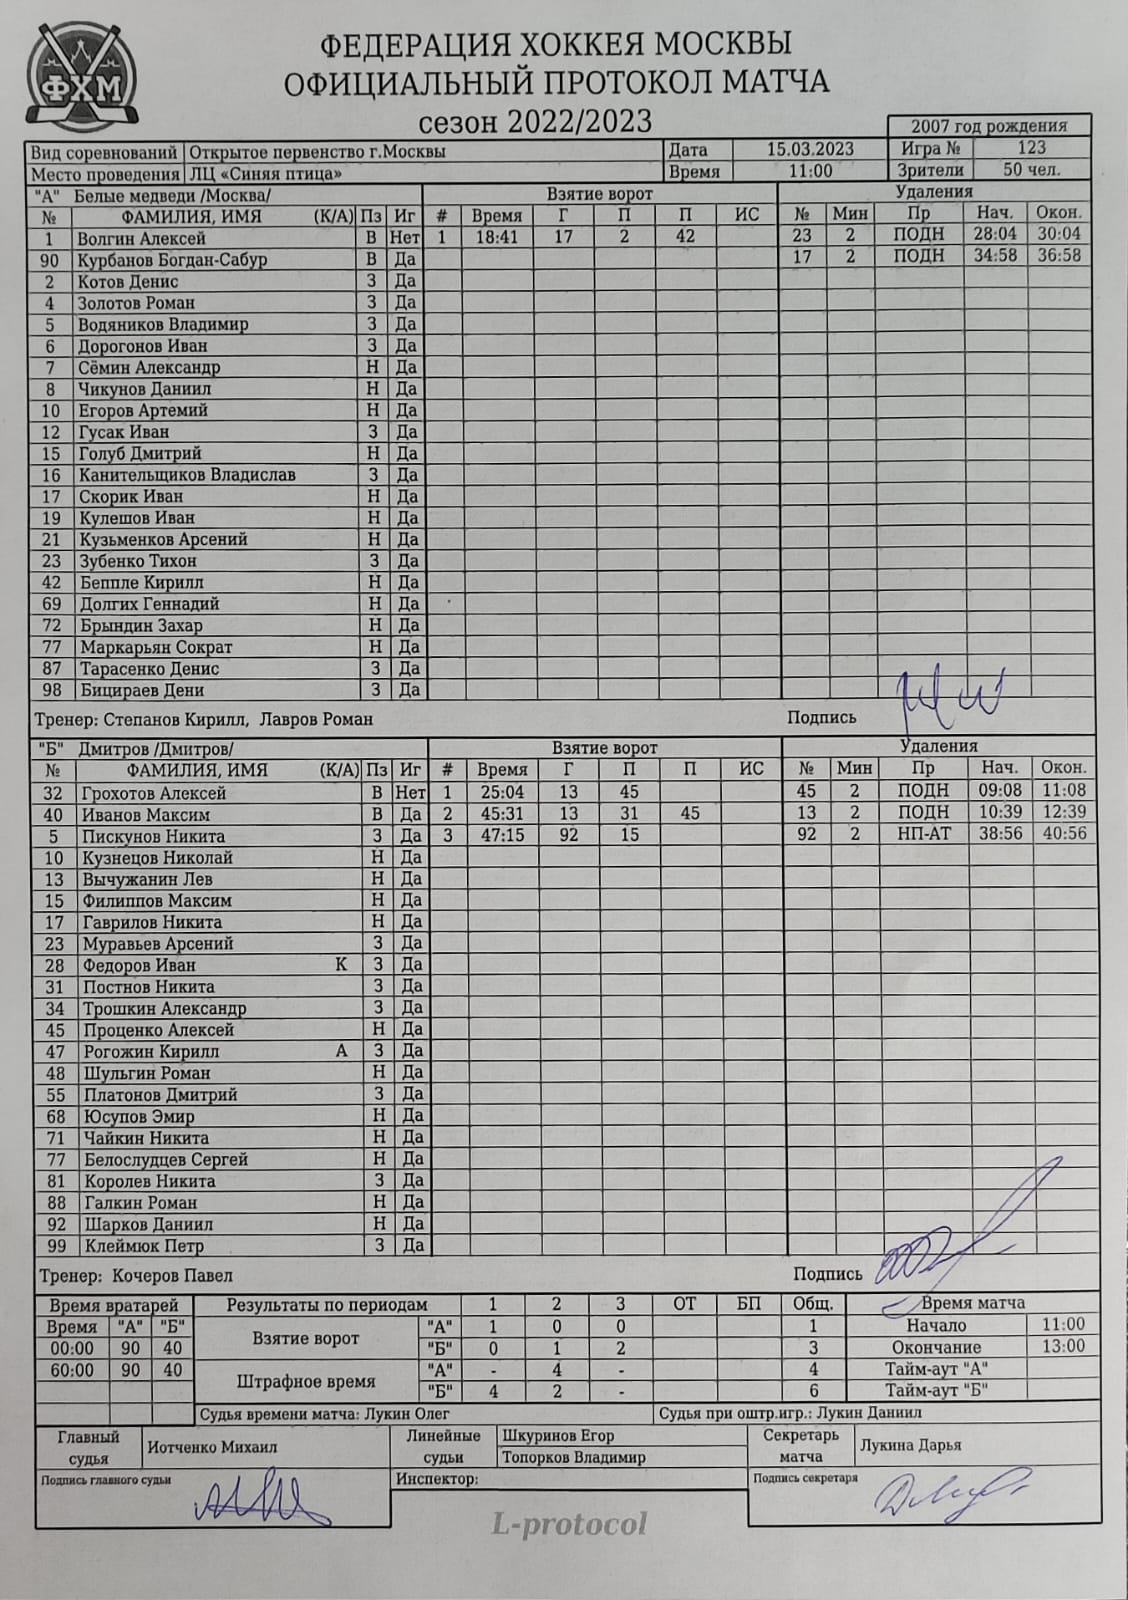 ФХМ
ФЕДЕРАЦИЯ ХОККЕЯ МОСКВЫ
ОФИЦИАЛЬНЫЙ ПРОТОКОЛ МАТЧА
сезон 2022/2023
2007 год рождения
Вид соревнований Открытое первенство г.Москвы Дата 15.03.2023 Игра № 123
Место проведения ЛЦ «Синяя птица» Время 11:00 Зрители 50 чел.
"А" Белые медведи /Москва/ Взятие ворот Удаления
№ ФАМИЛИЯ, ИМЯ (К/А) Пз Иг # Время Г П П ИС № Мин Пр Нач. Окон.
1 Волгин Алексей В Нет 1 18:41 17 2 42 23 2 ПОДН 28:04 30:04
90 Курбанов Богдан-Сабур В Да 17 2 ПОДН 34:58 36:58
2 Котов Денис З Да
4 Золотов Роман З Да
5 Водяников Владимир З Да
6 Дорогонов Иван З Да
7 Сёмин Александр Н Да
8 Чикунов Даниил Н Да
10 Егоров Артемий Н Да
12 Гусак Иван З Да
15 Голуб Дмитрий Н Да
16 Канительщиков Владислав З Да
17 Скорик Иван Н Да
19 Кулешов Иван Н Да
21 Кузьменков Арсений Н Да
23 Зубенко Тихон З Да
42 Беппле Кирилл Н Да
69 Долгих Геннадий Н Да
72 Брындин Захар Н Да
77 Маркарьян Сократ Н Да
87 Тарасенко Денис З Да
98 Бицираев Дени З Да
Тренер: Степанов Кирилл, Лавров Роман Подпись
"Б" Дмитров /Дмитров/ Взятие ворот Удаления
№ ФАМИЛИЯ, ИМЯ (К/А) Пз Иг # Время Г П П ИС № Мин Пр Нач. Окон.
32 Грохотов Алексей В Нет 1 25:04 13 45 45 2 ПОДН 09:08 11:08
40 Иванов Максим В Да 2 45:31 13 31 45 13 2 ПОДН 10:39 12:39
5 Пискунов Никита З Да 3 47:15 92 15 92 2 НП-АТ 38:56 40:56
10 Кузнецов Николай Н Да
13 Вычужанин Лев Н Да
15 Филиппов Максим Н Да
17 Гаврилов Никита Н Да
23 Муравьев Арсений З Да
28 Федоров Иван К З Да
31 Постнов Никита З Да
34 Трошкин Александр З Да
45 Проценко Алексей Н Да
47 Рогожин Кирилл А З Да
48 Шульгин Роман Н Да
55 Платонов Дмитрий З Да
68 Юсупов Эмир Н Да
71 Чайкин Никита Н Да
77 Белослудцев Сергей Н Да
81 Королев Никита З Да
88 Галкин Роман Н Да
92 Шарков Даниил Н Да
99 Клеймюк Петр З Да
Тренер: Кочеров Павел Подпись
Время вратарей Результаты по периодам 1 2 3 ОТ БП Общ. Время матча
Время "А" "Б" Взятие ворот "А" 1 0 0 1 Начало 11:00
00:00 90 40 "Б" 0 1 2 3 Окончание 13:00
60:00 90 40 Штрафное время "А" - 4 - 4 Тайм-аут "А"
"Б" 4 2 - 6 Тайм-аут "Б"
Судья времени матча: Лукин Олег Судья при оштр.игр.: Лукин Даниил
Главный судья Иотченко Михаил Линейные судьи Шкуринов Егор Секретарь матча Лукина Дарья
Топорков Владимир
Подпись главного судьи Инспектор: Подпись секретаря
L-protocol